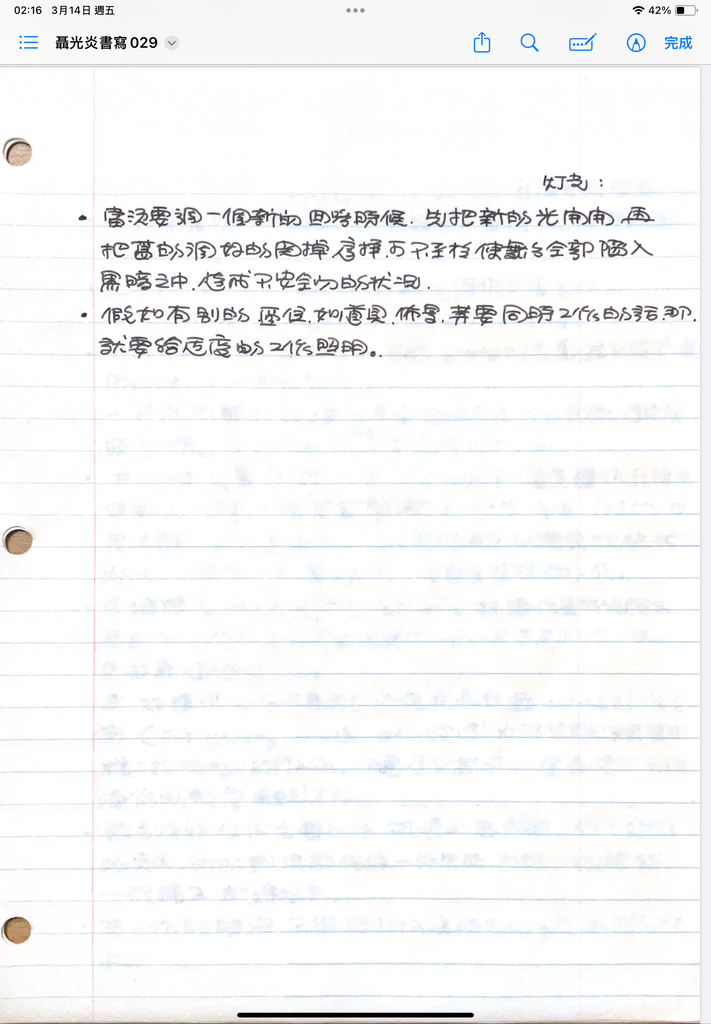 02:16 3月14日 週五
42%
聶光炎書寫029
完成
灯光：
• 當決要調一個新的 的時候. 先把新的光開開, 再
把舊的調好的關掉 , 而不至於使舞台全部陷入
黑暗之中, 造成不安全的狀況.
• 假如有別的單位, 如道具, 佈景, 并要同時工作的話, 那.
就要給 度的工作照明。.